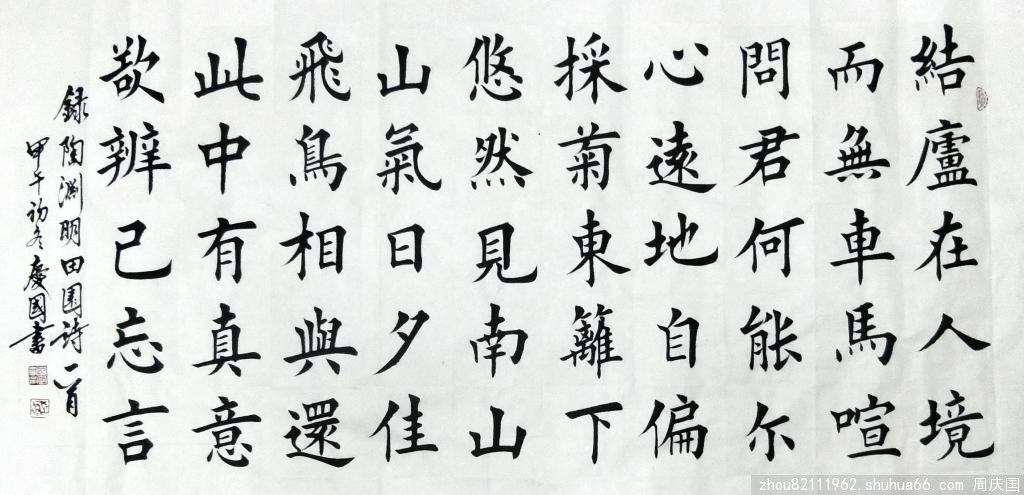 結廬在人境
而無車馬喧
問君何能尔
心遠地自偏
採菊東籬下
悠然見南山
山氣日夕佳
飛鳥相與還
此中有真意
欲辨己忘言
録陶淵明田園詩一首
甲午初冬慶國書
zhou82111962.shuhua66.com 周庆国